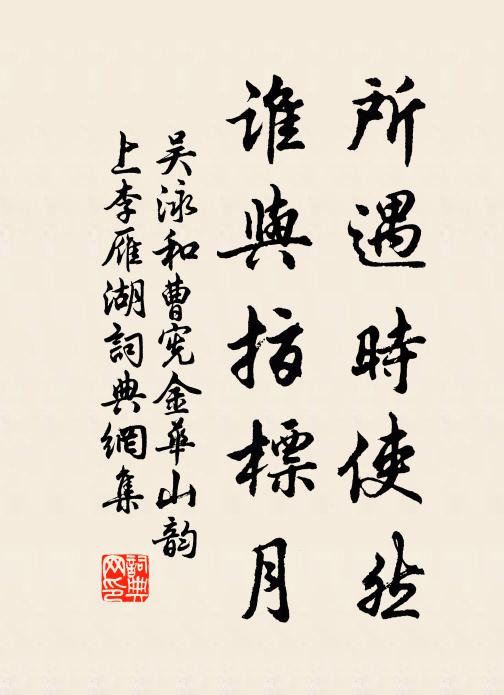 所遇時使然
誰與指標月
吴泳和曹宪金華山韵
上李雁湖詞典網集
詞典網印